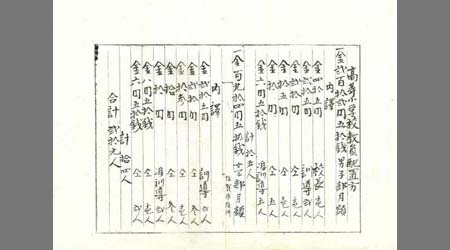 高等小学校教員配置方
一金弐百拾弐円五拾銭 男子部月額
内訳
金四拾円 校長壱人
金弐拾五円 訓導弐人
金弐拾円 仝 壱人
金拾 円 仝 壱人
金拾円 仝 五人
金六円五拾銭 准訓導五人
計拾五人
一金百九拾四円五拾銭 女子部月額
内訳
金弐拾五円 訓導弐人
金弐拾円 仝 弐人
金拾 円 仝 参人
金拾参円 仝 参人
金拾円 仝 壱人
金八円五拾銭 准訓導壱人
金六円五拾銭 仝 弐人
計 拾四人
合計 弐拾九人